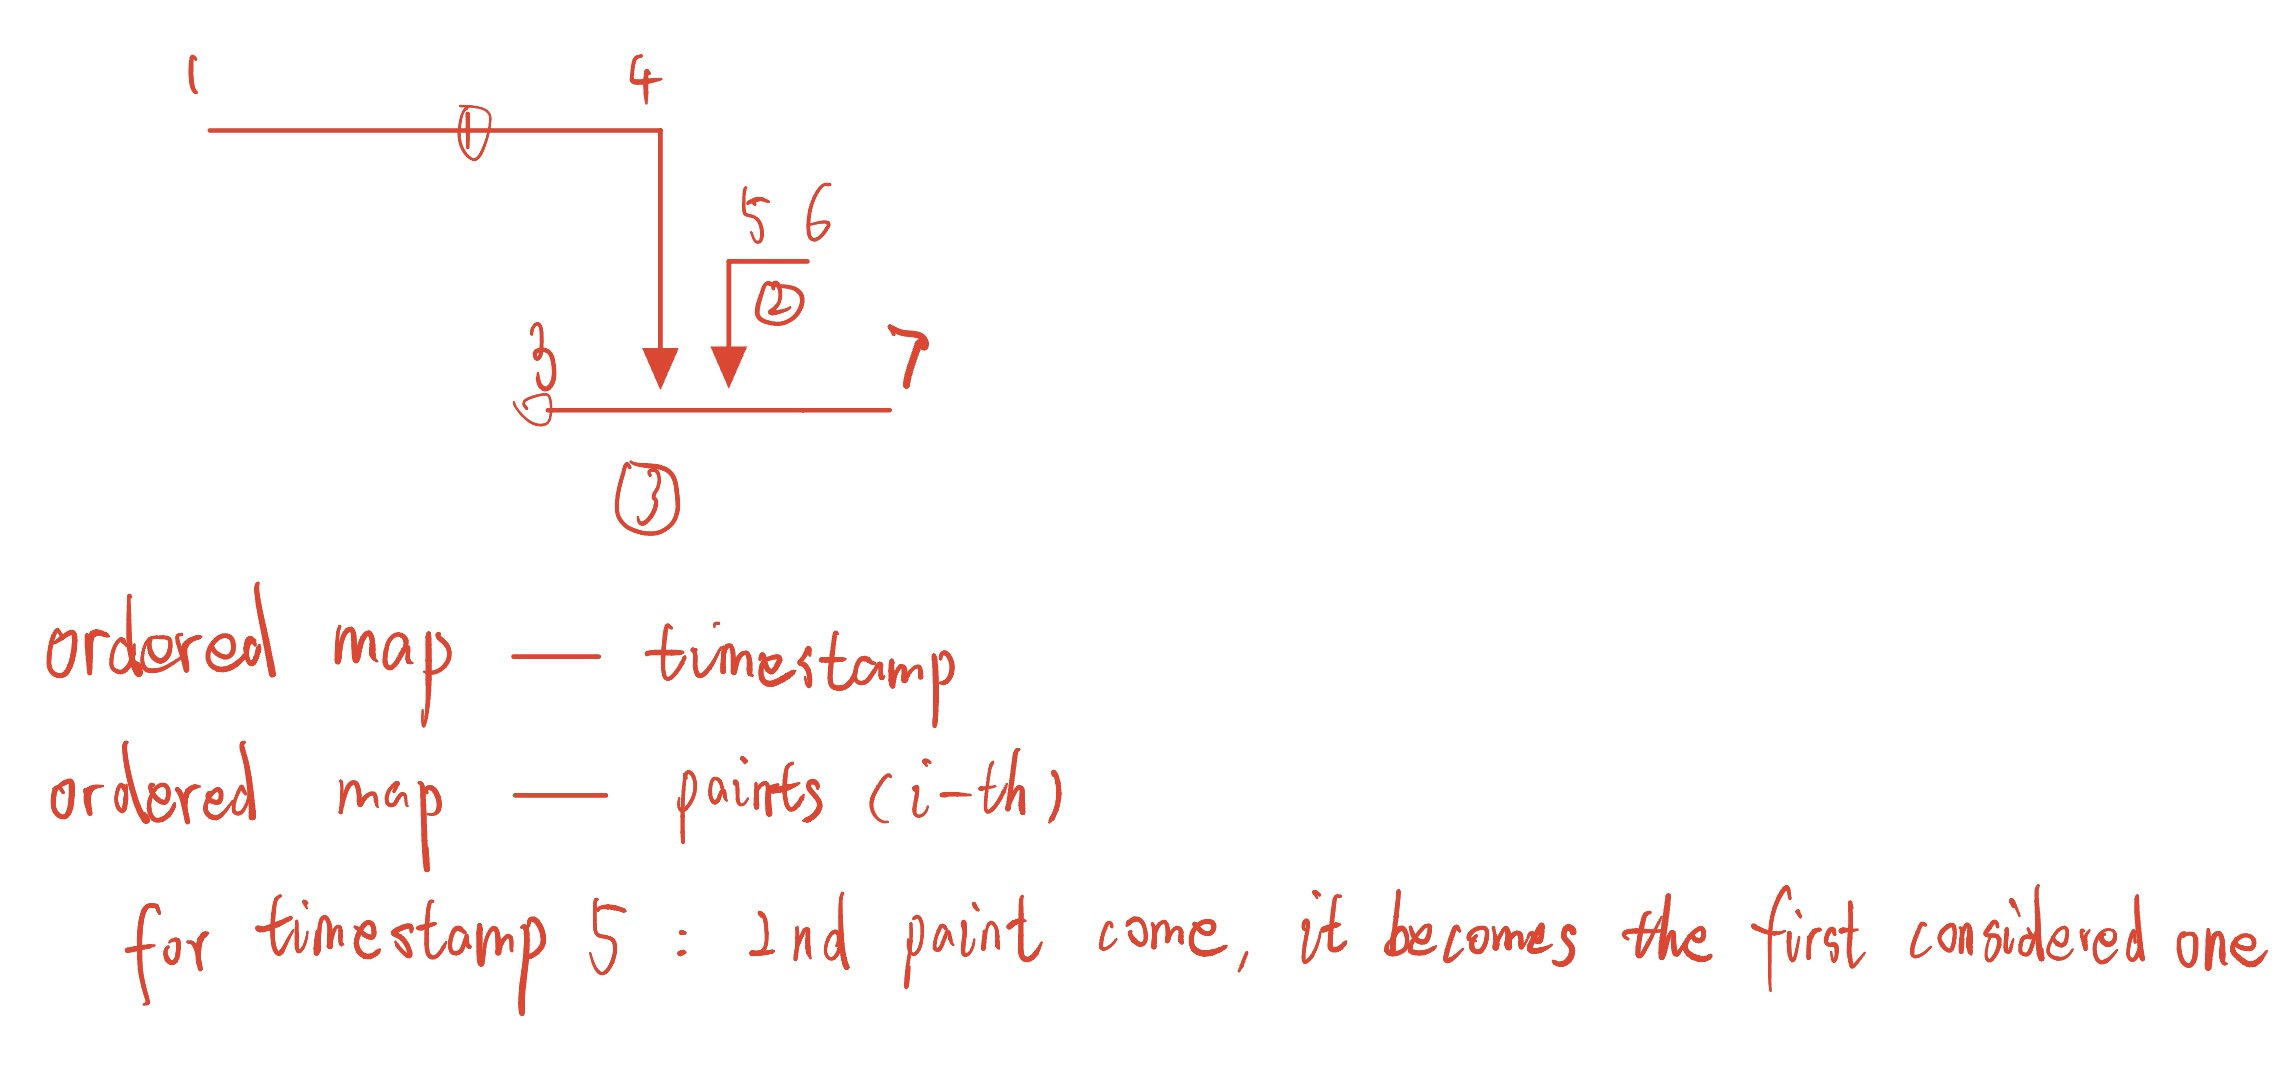 1 4
①
5 6
②
3 7
③
ordered map — timestamp
ordered map — points (i-th)
for timestamp 5 : 2nd point come, it becomes the first considered one